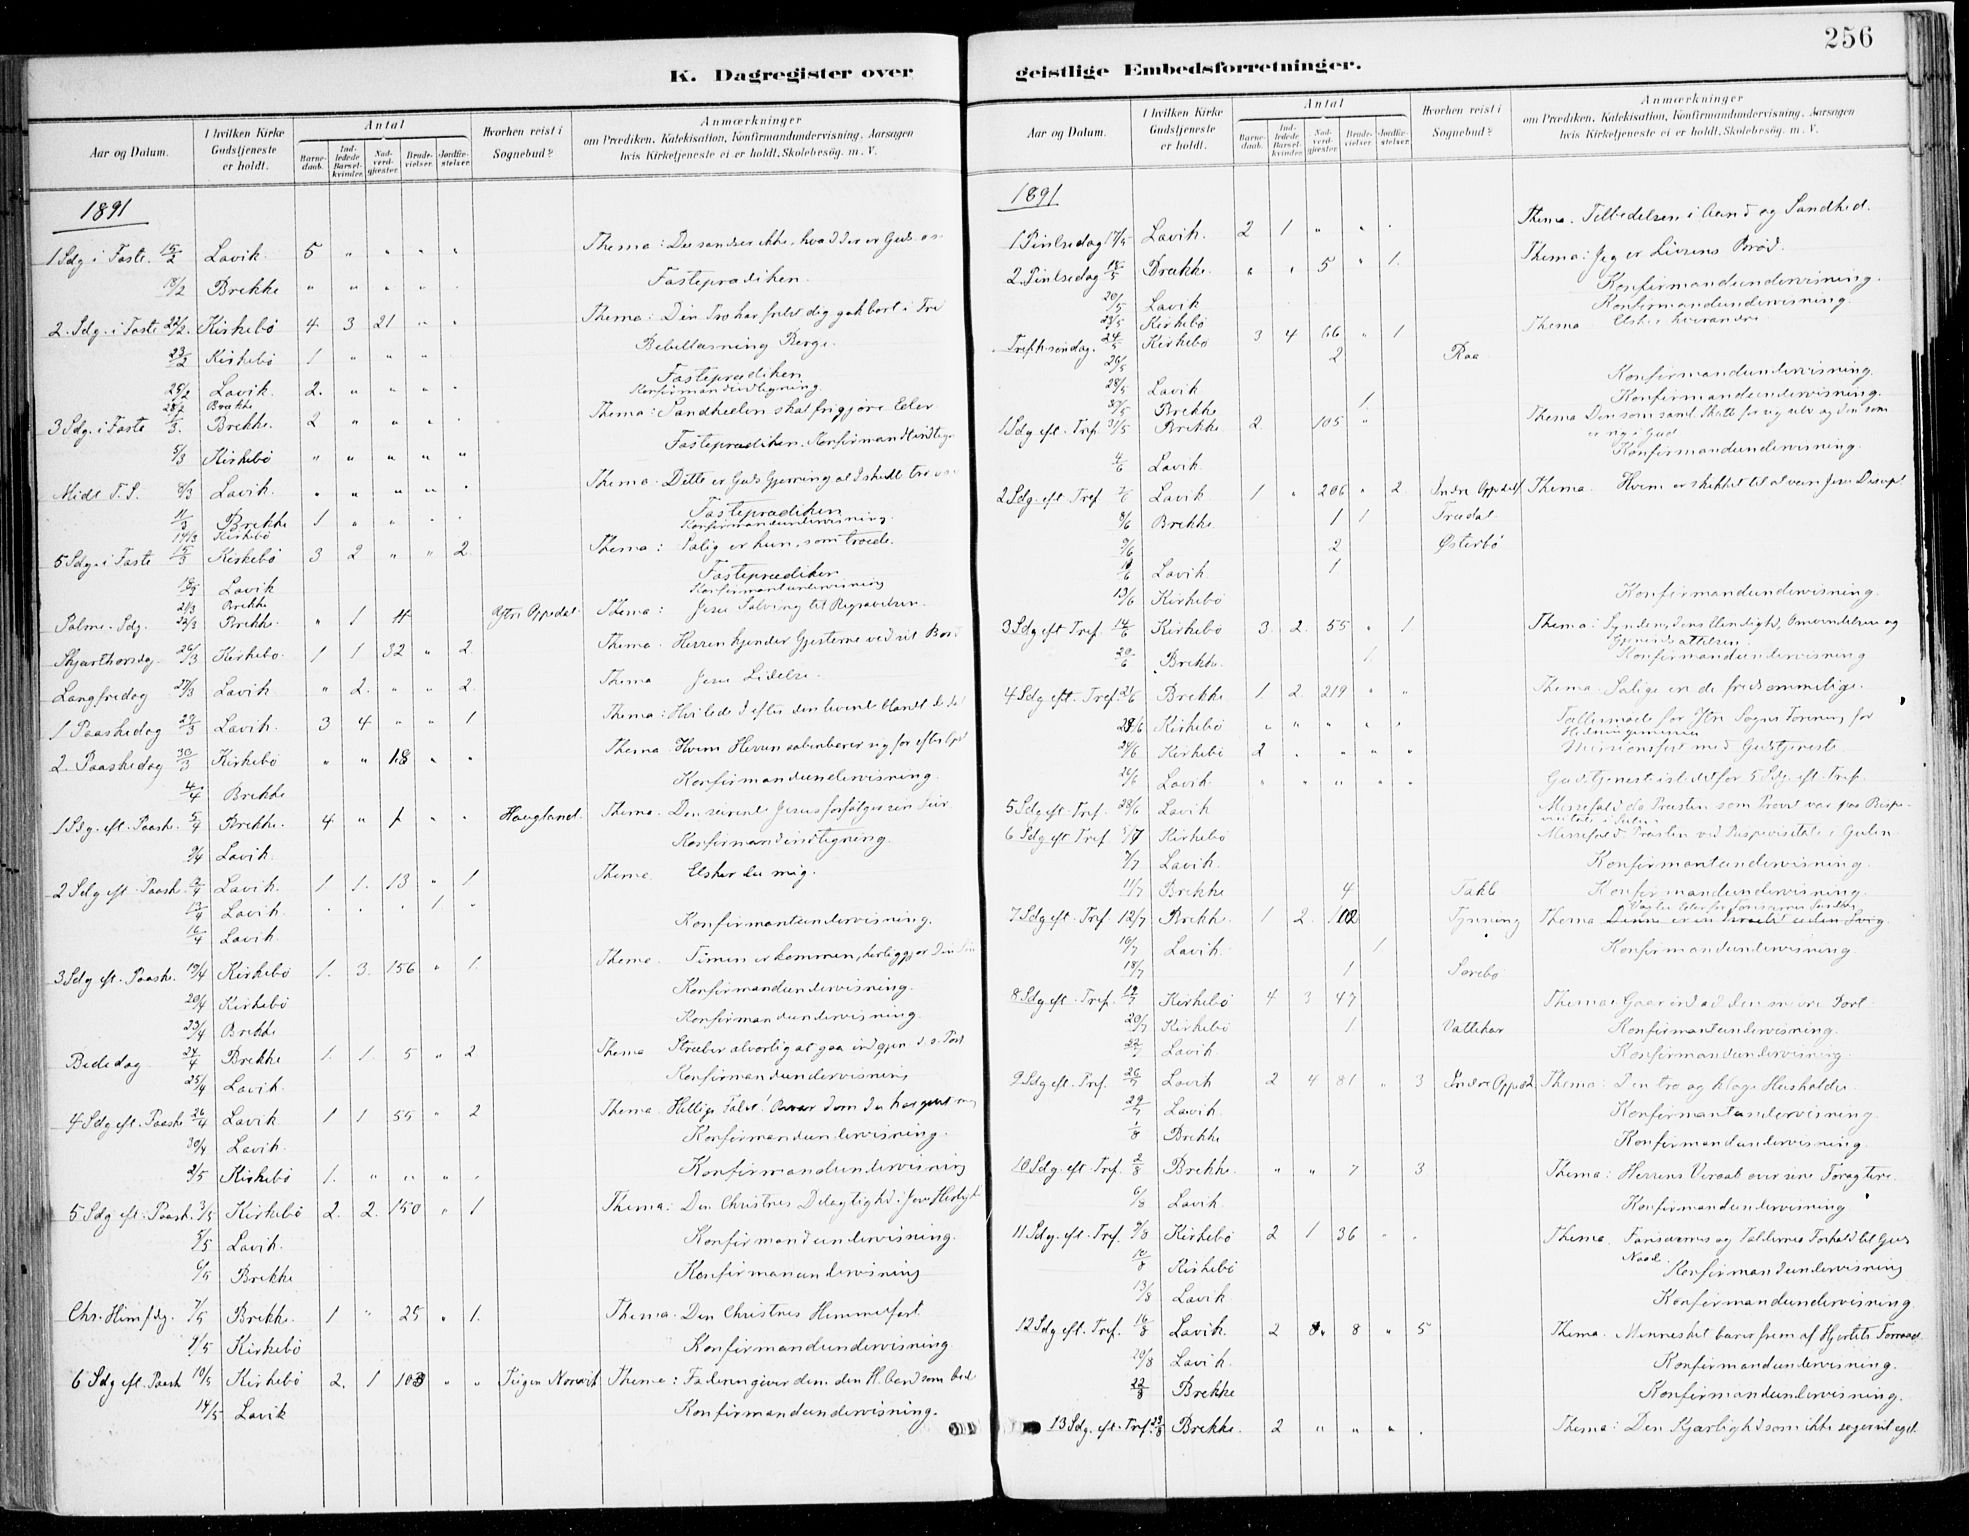 256
K. Dagregister over
Aar og Datum. I hvilken Kirke Gudstjeneste er holdt. Antal Barnedaab. Indledede Barselkvinder. Nadverdgjæster. Brudevielser. Jordfæstelser. Hvorhen reist i Sognebud? Anmærkninger om Prædiken, Katekisation, Konfirmandundervisning, Aarsagen hvis Kirketjeneste ei er holdt, Skolebesøg. m. V.
1891
1 Sdg i Faste 15/2 Lavik. 5 " " " " Thema: Du sandser ikke, hvad der er Guds
18/2 Brekke " " " " " Fasteprædiken.
2. Sdg. i Faste 22/2 Kirkebø 4 3 21 " " Thema: Din Tro har frelst dig gak bort i Fre
23/2 Kirkebø 1 " " " Bibellæsning Berge.
25/2 Lavik. 2. " " " " Fasteprædiken
28/2 Brekke Konfirmandindtegning.
3 Sdg. i Faste 1/3. Brekke. 2 " " " " Thema: Sandheden skal frigjøre Eder
5/3 Kirkebø " " " " " Fasteprædiken. Konfirmandindtegn
Midt F. S. 8/3 Lavik. " " " " " Thema. Dette er Guds Gjerning at I skulle tro
11/3 Brekke 1 " " " " Fasteprædiken
14/3 Kirkebø Konfirmandundervisning.
5 Sdg. i Faste 15/3 Kirkebø 3 2 " " 2 Thema: Salig er hun, som troede.
18/3 Lavik Fasteprædiken
21/3 Brekke Konfirmantundervisning
Palme. Sdg. 22/3 Brekke. " 1 4 Ytre Oppedal. Thema: Jesu Salving til Begravelsen.
Skjærthorsdag. 26/3 Kirkebø. 1 1 32 " 2. Thema. Herren kjender Gjesterne ved sit Bord
Langfredag 27/3 Lavik " 2. " " 2. Thema Jesu Lidelse.
1 Paaskedag 29/3 Lavik. 3 4 " " 1 Thema: Hvi lede I efter den levende blandt de dø
2. Paaskedag 30/3 Kirkebø " " 18 " " Thema. Hvem Herren aabenbarer sig for efter
4/4 Brekke Konfirmandundervisning.
1 Sdg. eft. Paaske. 5/4 Brekke. 4 " 1 " " Haugland. Thema. Den seirende Jesus forfølger sin Seir.
9/4 Lavik. Konfirmandindtegning.
2 Sdg eft. Paaske 12/4 Lavik. 1 1. 13 " 1 Thema. Elsker du mig.
13/4 Lavik. " " " 1 "
16/4 Lavik Konfirmantundervisning.
3 Sdg eft. Paaske. 19/4 Kirkebø 1. 3. 156 " 1. Thema. Timen er kommen, herliggjør din Søn
20/4 Kirkebø Konfirmandundervisning.
23/4 Brekke Konfirmandundervisning.
Bededag 24/4 Brekke 1. 1. 5 " 2 Thema Stræber alvorlig at gaa ind gjen. d. s. Port
25/4 Lavik. Konfirmandundervisning
4 Sdg eft. Paaske 26/4 Lavik 1 1. 55 " 2 Thema. Hellige Fader! Bevar dem du har givet mig
30/4 Lavik. Konfirmandundervisning.
2/5 Kirkebø 1. " " " " Konfirmandundervisning
5 Sdg eft. Paask. 3/5 Kirkebø 2. 2. 150 " 1. Thema: Den Christnes Delagtighed i Jesu Herlighed
5/5 Lavik. Konfirmandundervisning.
6/5 Brekke Konfirmanundervisning
Chr. Himfdg. 7/5 Brekke. 1 " 25 " 1. Thema. Den Christnes Himmelfart.
9/5 Kirkebø Konfirmandundervisning.
6 Sdg eft. Paask 10/5 Kirkebø 2. 1 103 " " Thema: Faderen giver dem den H. Aand som bede
14/5 Lavik Konfirmandundervisning.
geistlige Embedsforretninger.
Aar og Datum. I hvilken Kirke Gudstjeneste er holdt. Antal Barnedaab. Indledede Barselkvinder. Nadverdgjæster. Brudevielser. Jordfæstelser. Hvorhen reist i Sognebud? Anmærkninger om Prædiken, Katekisation, Konfirmandundervisning, Aarsagen hvis Kirketjeneste ei er holdt, Skolebesøg. m. V.
1891
1 Pintsedag 17/5 Lavik. 2 1 " " " Thema. Tilbedelsen i Aand og Sandhed.
2. Pintsedag 18/5 Brekke. " " 5 " 1. Thema: Jeg er Livsens Brød.
20/5 Lavik Konfirmandundervisning.
23/5 Kirkebø Konfirmandundervisning.
Trefk. søndag. 24/5 Kirkebø 3 4 66 " 1 Thema Elsker hverandre
26/5 2 Raa
28/5 Lavik Konfirmandundervisning.
30/5 Brekke 1 Konfirmandundervisning.
1 Sdg eft. Tref. 31/5 Brekke 2. 105 " Thema Den som saml. Skatte for sig selv og den som er rig i Gud
4/6 Lavik. Konfirmandundervisning.
2 Sdg. eft Tref 7/6 Lavik. 1 " 206 " 2. Indre Oppedal Thema. Hvem er skikket til at være Jesu Discipel
8/6 Brekke. 1 1 Fredal.
9/6 2 Østerbø
10/6 Lavik. 1
13/6 Kirkebø Konfirmandundervisning.
3 Sdg eft Tref. 14/6 Kirkebø 3. 2. 55 " 1 Thema: Syndens Elendighed, Omvendelsen og Gjenindsættelsen.
20/6 Brekke. 1. Konfirmandundervisning
4 Sdg eft. Tref. 21/6 Brekke 1. 2. 219 " " Thema. Salige ere de fredsommelige.
23/6 Kirkebø " " " " " Fællesmøde for Ytre Sogns Forening for Hedningemission
24/6 Kirkebø 2 " " " " Missionsfest med Gudstjeneste
26/6 Lavik. " " " " " Gudstjenest istedetfor 5 Sdg. eft. Tref.
5 Sdg eft. Tref. 28/6 Lavik Messefald da Præsten som Provst var paa Bispevisitats i
6 Sdg eft. Tref. 5/7 Kirkebø Messefald. Præsten ved Bispevisitats i Gulen
9/7 Lavik. Konfirmantundervisning
11/7 Brekke 4 Takle Konfirmandundervisning.
7 Sdg eft. Tref 12/7 Brekke. 1 2. 102 Tynning Thema. Vogter Eder for Farisæernes Surdeig Denne er en Israelit uden Svig.
16/7 Lavik. 1 Konfirmandundervisning
18/7 1 Sørebø
8 Sdg eft. Tref. 19/7 Kirkebø 4 3 47 Thema. Gaar ind ad den snevre Port.
20/7 Kirkebø 1 Konfirmantundervisning.
22/7 Lavik. Konfirmandundervisning.
9 Sdg eft. Tref. 26/7 Lavik 2 4 81 " 3 Indre Oppedal Thema: Den tro og kloge Husholder
29/7 Lavik. Konfirmantundervisning.
1/8 Brekke Konfirmandundervisning.
10 Sdg. eft. Tref. 2/8 Brekke. " " 7 3 Thema: Herrens Veraab over sine Foragtere.
6/8 Lavik. Konfirmandundervisning
11 Sdg. eft. Tref. 9/8 Kirkebø 2 1 36 " " Thema. Farisæernes og Toldernes Forhold til Guds Naade.
10/8 Kirkebø Konfirmandundervisning
13/8 Lavik Konfirmandundervisning.
12 Sdg eft. Tref. 16/8 Lavik. 2 " 8 " 5 Thema. Mennesket bærer frem af Hjertets Forraad.
20/8 Lavik. Konfirmandundervisning.
22/8 Brekke Konfirmandundervisning.
13 Sdg. eft. Tref. 23/8 Brekke. 2 " " " " Thema: Den Kjærlighed som ikke søger sit eget.